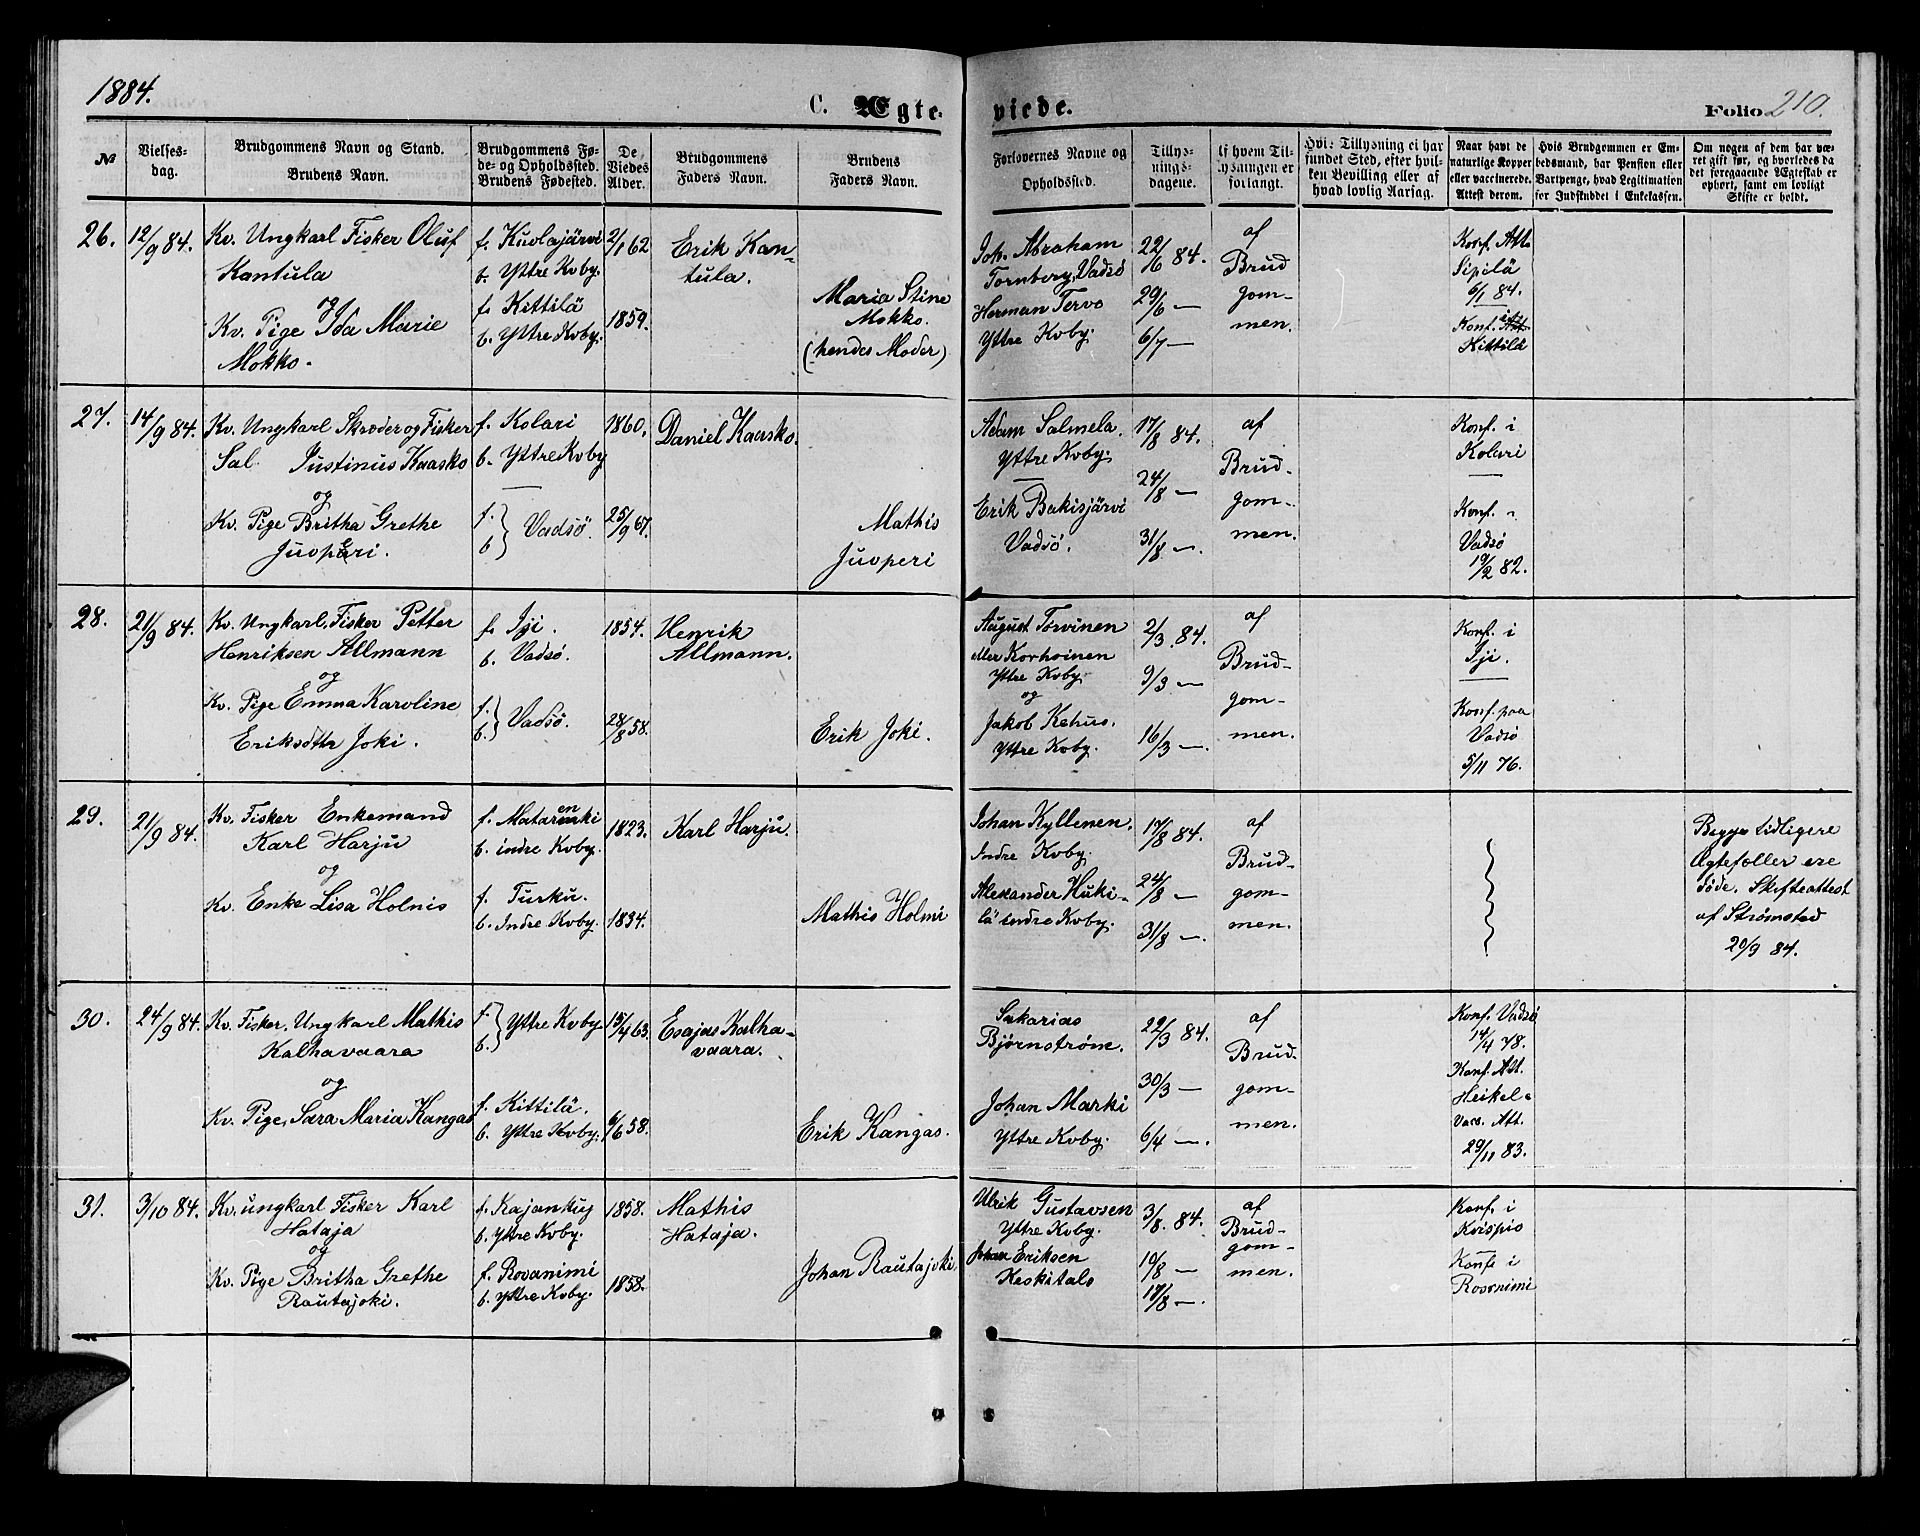 1884.
C. Ægte-
viede.
Folio 210.
№
Vielses-
dag.
Brudgommens Navn og Stand.
Brudens Navn.
Brudgommens Fø-
de- og Opholdssted.
Brudens Fødested.
De
Viedes
Alder.
Brudgommens
Faders Navn.
Brudens
Faders Navn.
Forlovernes Navne og
Opholdssted.
Tillys-
nings-
dagene.
Af hvem Til-
lysningen er
forlangt.
Hvis Tillysning ei har
fundet Sted, efter hvil-
ken Bevilling eller af
hvad lovlig Aarsag.
Naar havt de
naturlige Kopper
eller vaccinerede.
Attest derom.
Hvis Brudgommen er Em-
bedsmand, har Pension eller
Vartpenge, hvad Legitimation
for Indskuddet i Enkekassen.
Om nogen af dem har væ-
ret gift før, og hvorledes da
det foregaaende Ægteskab er
ophørt, samt om lovligt
Skifte er holdt.
26.
12/9 84.
Kv. Ungkarl Fisker Oluf
Kantula
og
Kv. Pige Ida Marie
Mokko.
f. Kuolajärvi
b. Yttre Kvby.
f. Kittilä
b. Yttre Kvby.
2/1 62
1859.
Erik Kan-
tula.
Maria Stine
Mokko.
(hendes Moder)
Joh. Abraham
Tornberg, Vadsø
Herman Tervo
Yttre Kvby.
22/6 84.
29/6 —
6/7 —
af
Brud
gom-
men.
Konf. Att.
Sipilä
6/1 84.
Konf. Att
Kittilä
27.
14/9 84.
Kv. Ungkarl Skræder og Fisker
Sal. Justinus Kaasko
og
Kv. Pige Britha Grethe
Juoperi.
f. Kolari
b. Yttre Kvby
f.
b. } Vadsö.
1860.
25/9 67.
Daniel Kaasko.
Mathis
Juoperi
Adam Salmela.
Yttre Kvby.
Erik Bakisjärvi
Vadsö.
17/8 84.
24/8 —
31/8 —
af
Brud-
gom-
men.
Konf. i
Kolari
Konf. i
Vadsø
19/2 82.
28.
21/9 84.
Kv. Ungkarl, Fisker Petter
Henriksen Allmann
og
Kv. Pige Emma Karoline
Eriksdttr Joki.
f. Iji.
b. Vadsø.
f.
b. } Vadsø.
1854.
28/8 58.
Henrik
Allmann.
Erik Joki.
August Torvinen
eller Korhoinen
Yttre Kvby
og
Jakob Kehus.
Yttre Kvby.
2/3. 84.
9/3 —
16/3 —
af
Brud-
gom-
men.
Konf. i
Iji.
Konf. paa
Vadsø
5/11 76.
29.
21/9 84.
Kv. Fisker Enkemand
Karl Harju
og
Kv. Enke Lisa Holnis
f. Matarenki
b. indre Kvby.
f. Turku.
b. Indre Kvby.
1823.
1834.
Karl Harju.
Mathis Holmi
Johan Kyllenen.
Indre Kvby.
Alexander Huki-
lä indre Kvby.
17/8 84.
24/8 —
31/8 —
af
Brud-
gom-
men.
Begges tidligere
Ægtefæller ere
døde. Skifteattest
af Strømsted
20/9 84.
30.
24/9 84.
Kv. Fisker, Ungkarl Mathis
Kalhavaara
og
Kv. Pige, Sara Maria Kangas
f.
b. } Yttre Kvby.
f. Kittilä.
b. Yttre Kvby.
15/4 63.
6/6 58.
Esajas Kalha-
vaara.
Erik Kangas.
Sakarias
Bjørnstrøm.
Johan Marki
Yttre Kvby.
22/3 84.
30/3 —
6/4 —.
af
Brud-
gom-
men.
Konf. Vadsø
14/4 78.
Konf. Att.
Heikel
Vacc. Att.
29/11 83.
31.
3/10 84.
Kv. ungkarl Fisker Karl
Hataja
og
Kv. Pige Britha Grethe
Rautajoki.
b. Yttre Kvby.
f. Rovanimi
b. Yttre Kvby.
1858.
1858.
Mathis
Hataja.
Johan Rautajoki.
Ulrik Gustavsen
Yttre Kvby.
Johan Eriksen
Keskitalo
3/8. 84.
10/8 —
17/8 —.
af
Brud-
gom-
men.
Konf. i
Konf. i